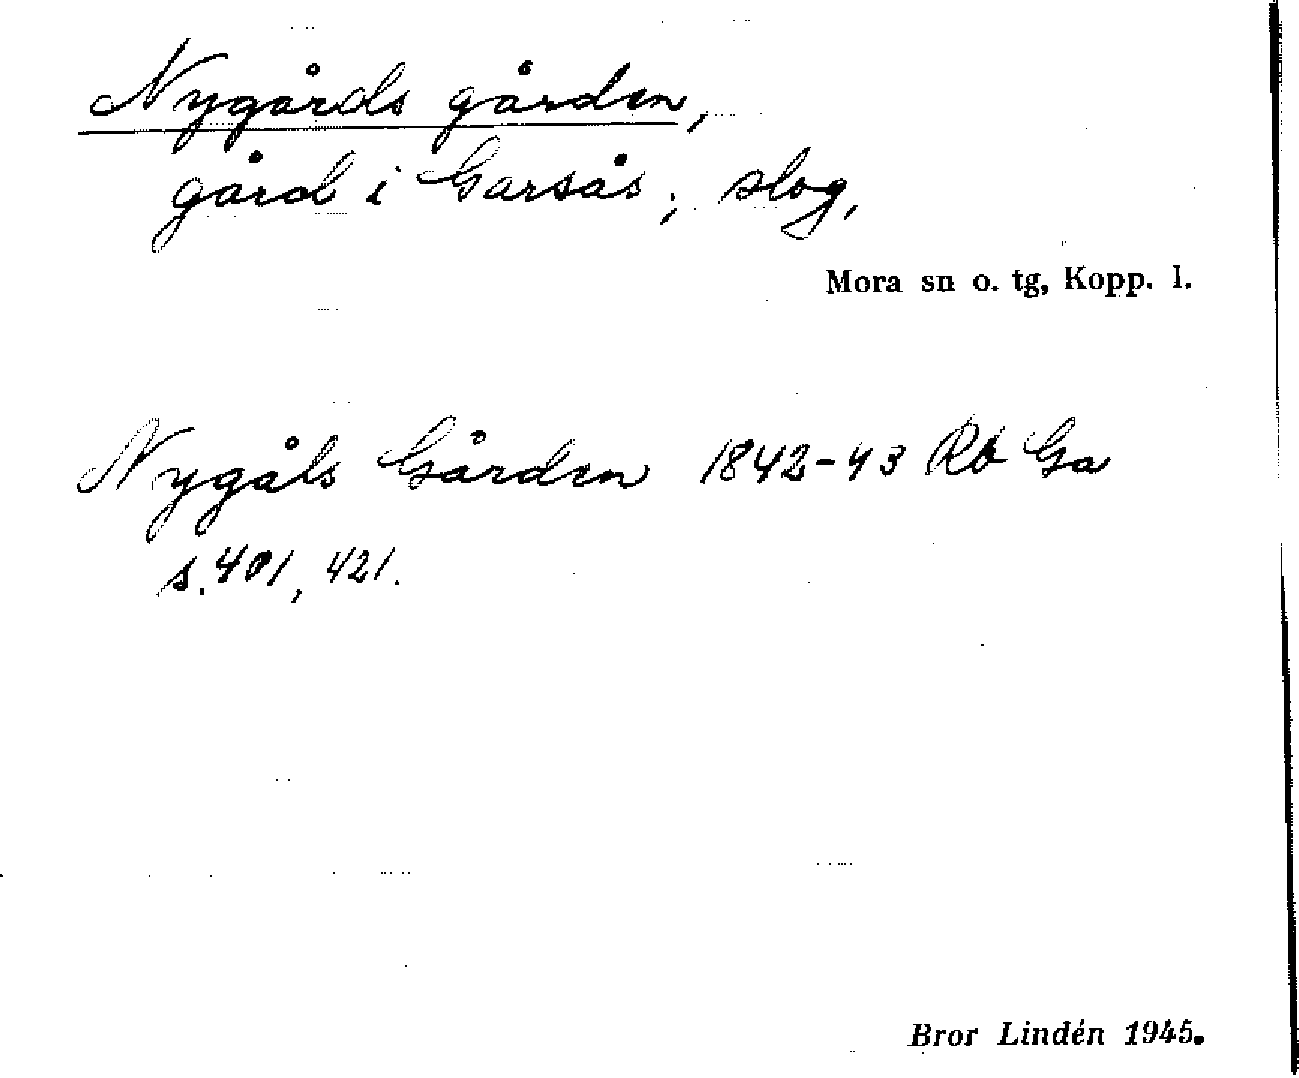 Nygårds gården,
gård i Garsås; slog,
Mora sn o. tg, Kopp. l.
Nygåls Gården 1842-43 Rb Ga
s. 401, 421.
Bror Lindén 1945.